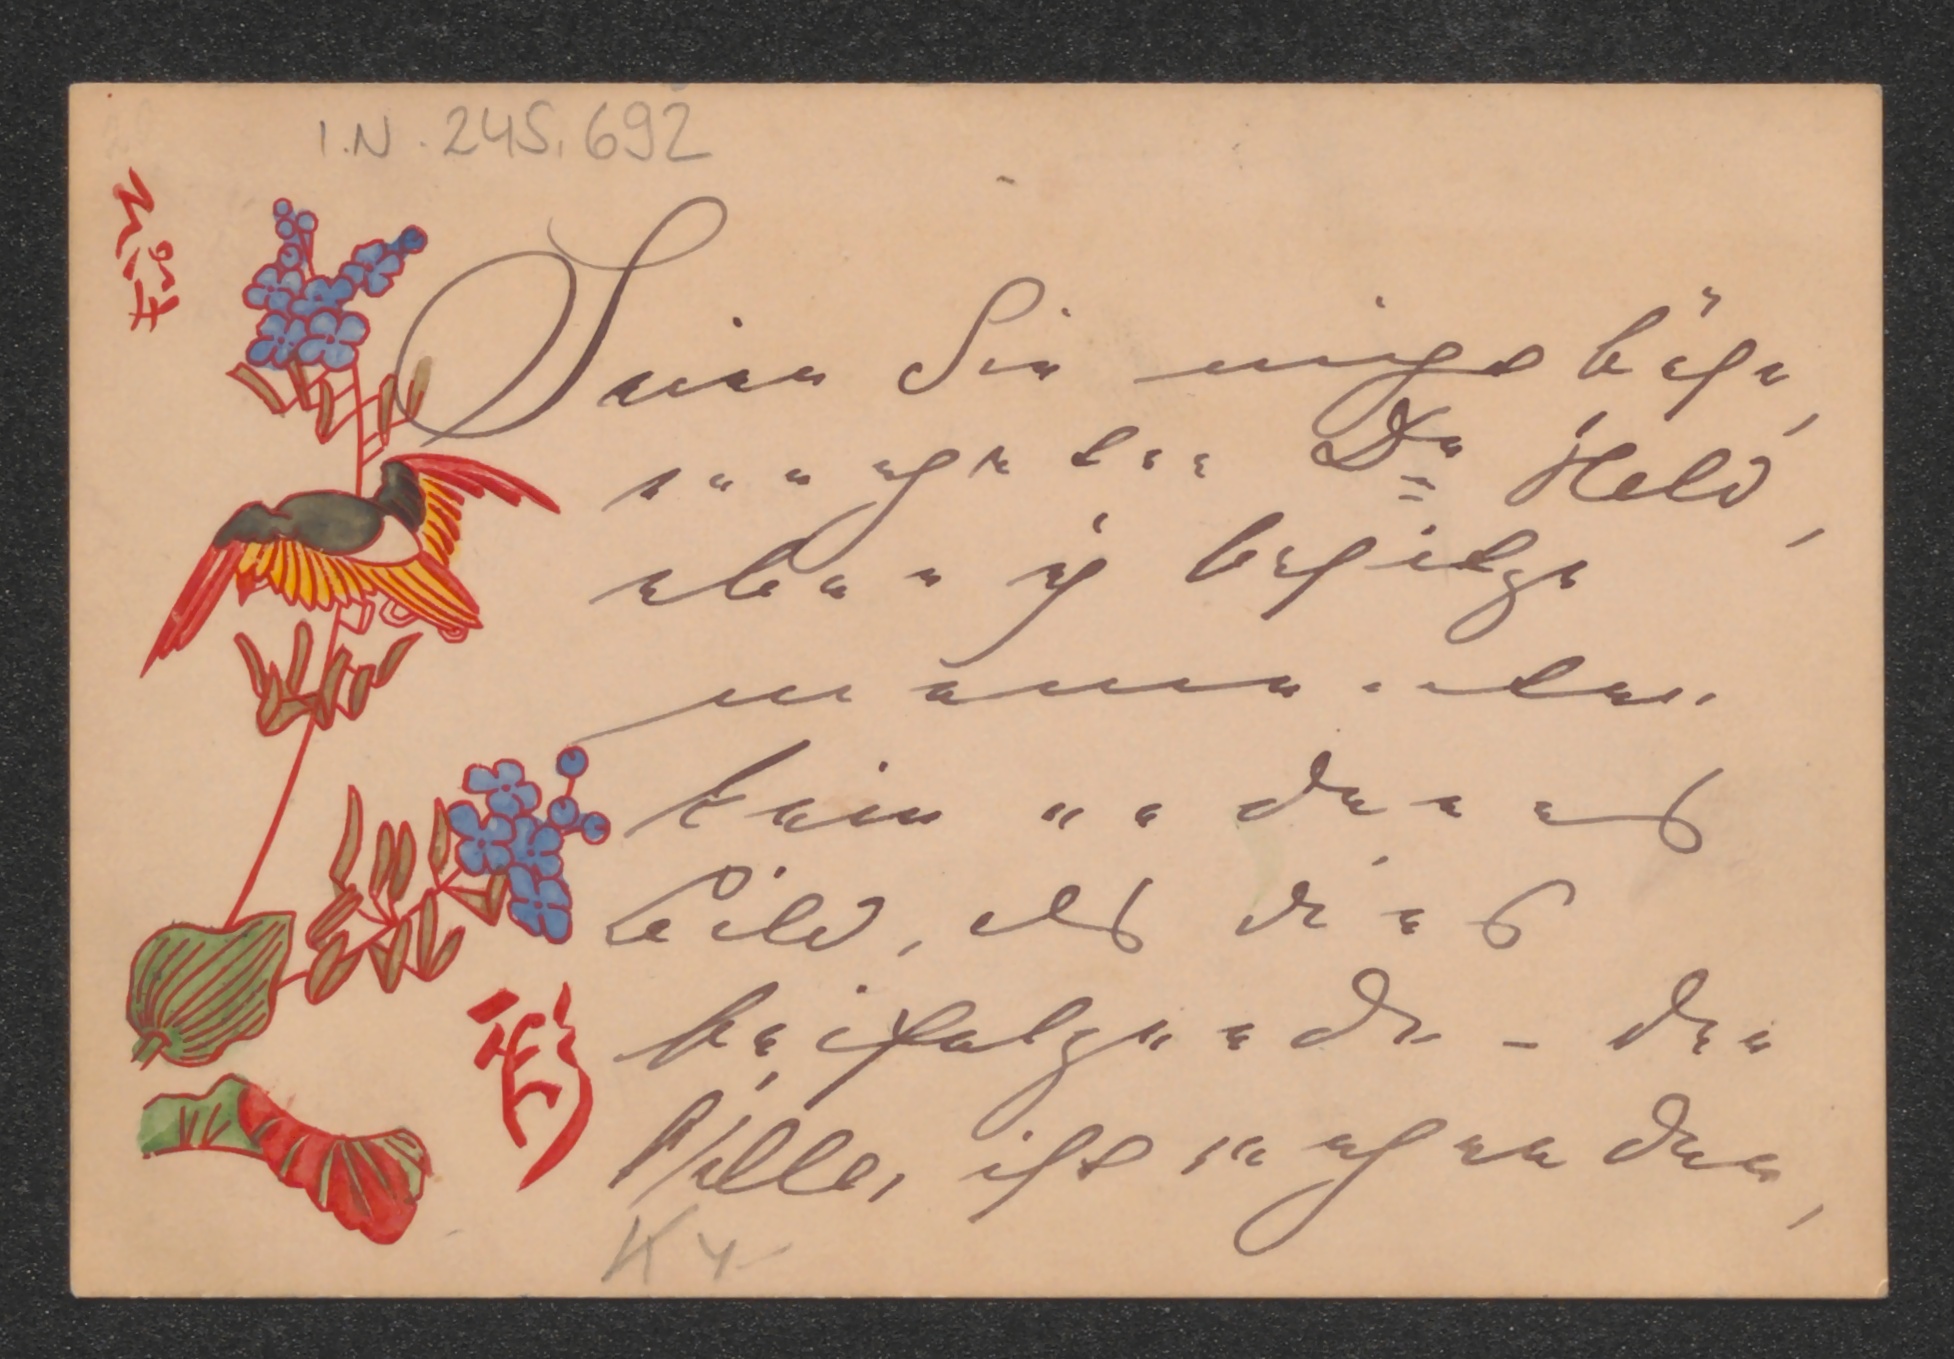 I.N. 245.692
Seien Sie nicht böse,
verehrter Dr Held,
aber ich besitze
momentan
kein anderes
Bild, als dies
beifolgende - der
Wille, ist vorhanden,